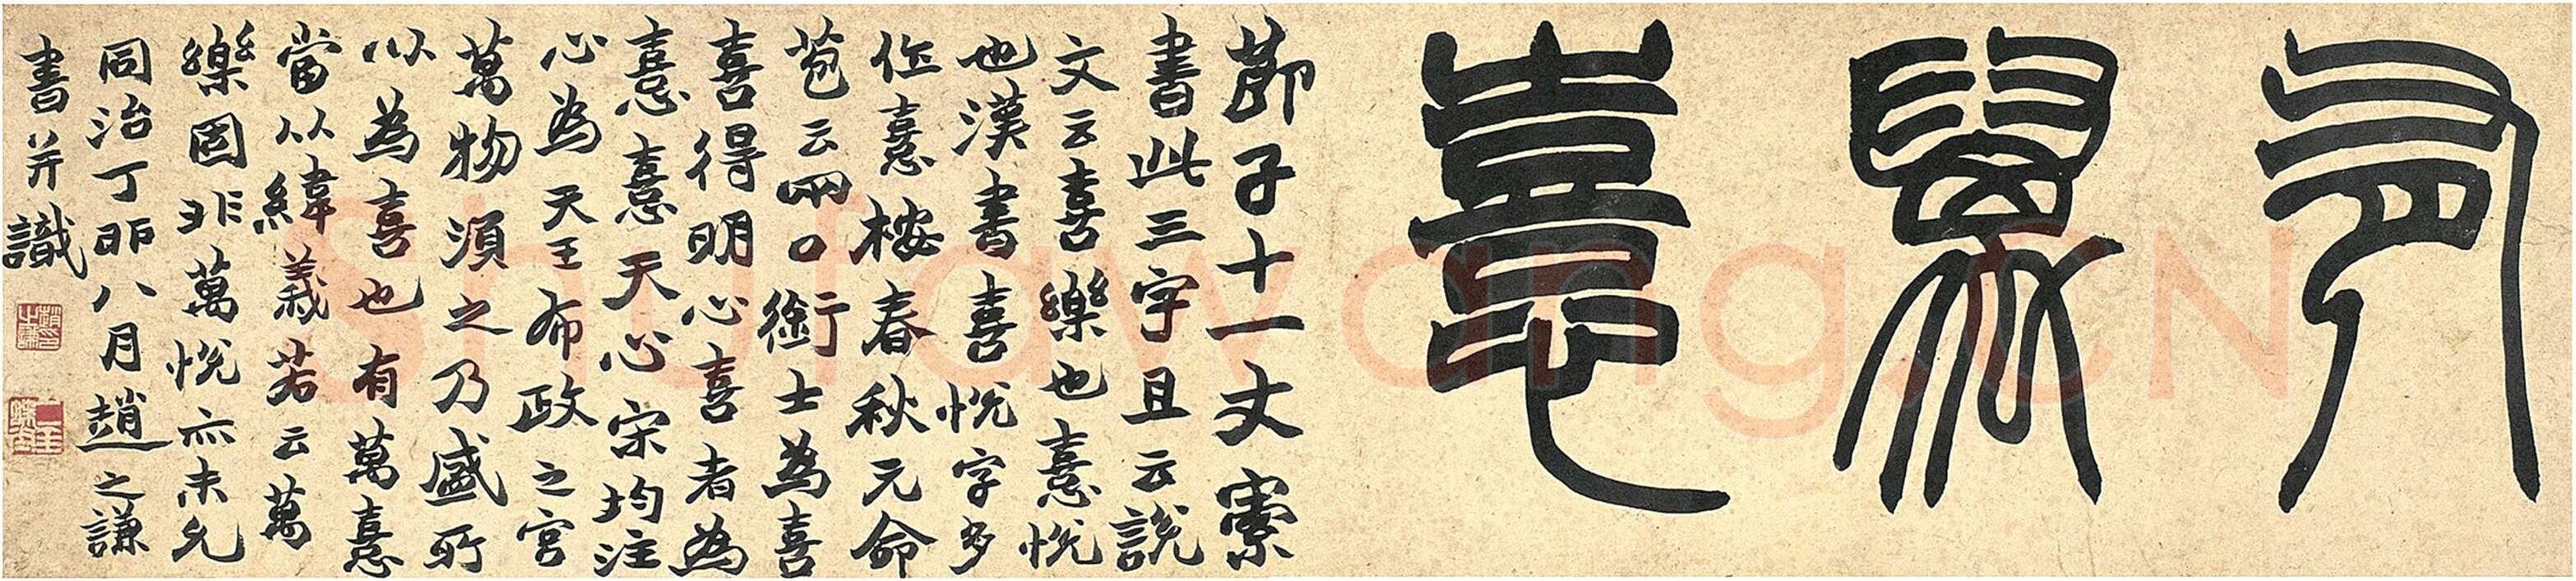 有萬憙
莭子十一丈索
書此三字且云說
文云喜樂也憙悅
也漢書喜悅字多
作憙桉春秋元命
苞云兩口銜士為喜
喜得明心喜者為
憙憙天心宋均注
心為天王布政之宮
萬物須之乃盛所
以為喜也有萬憙
當以緯義若云萬
樂固非萬悅亦未允
同治丁卯八月趙之謙
書并識
Shufawang.CN